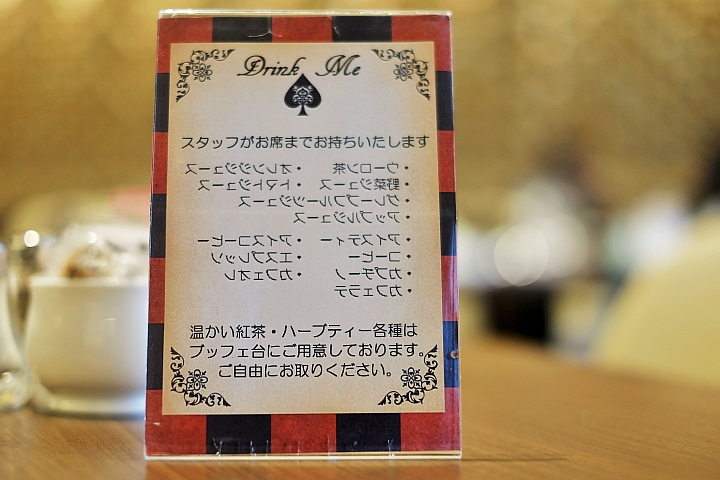 Drink Me
スタッフがお席までお持ちいたします
・ウーロン茶 ・オレンジジュース
・野菜ジュース ・トマトジュース
・グレープフルーツジュース
・アップルジュース
・アイスティー ・アイスコーヒー
・コーヒー ・エスプレッソ
・カプチーノ ・カフェオレ
・カフェラテ
温かい紅茶・ハーブティー各種は
ブッフェ台にご用意しております。
ご自由にお取りください。